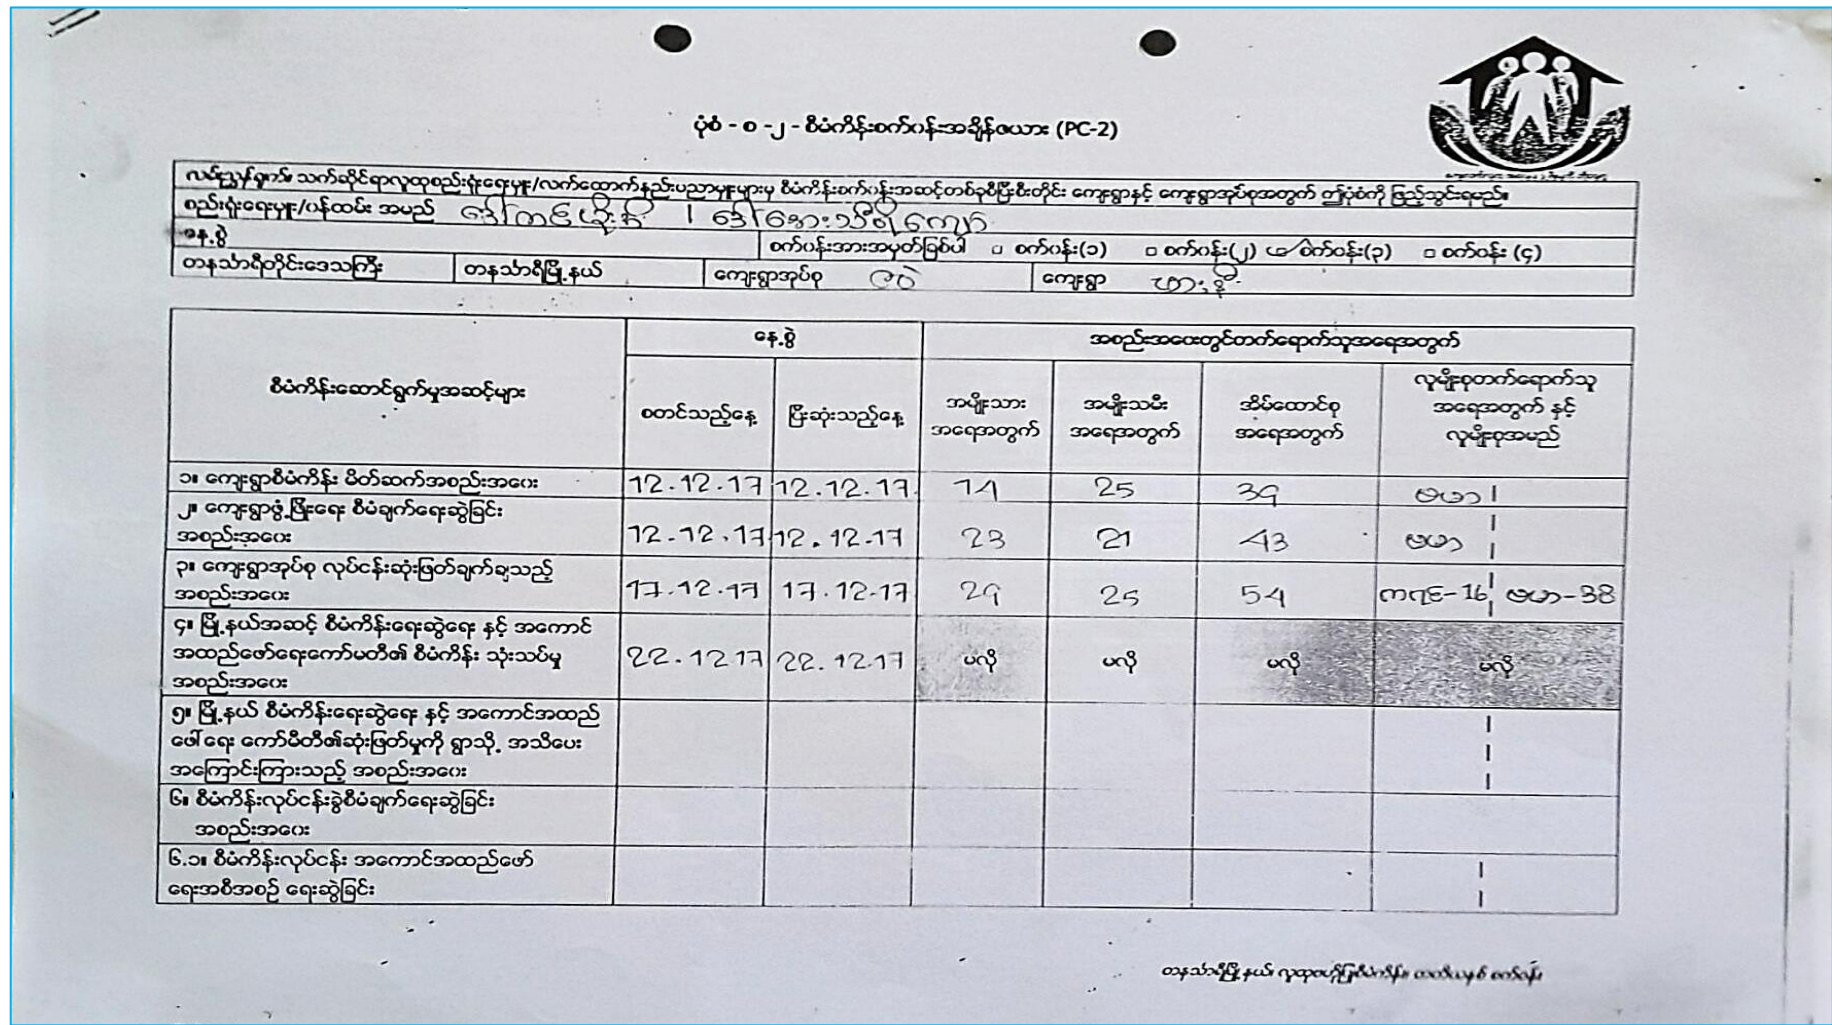 ပုံစံ - စ -၂ - စီမံကိန်းစက်ဝန်းအချိန်ဇယား (PC-2)
လမ်းညွှန်ချက်။ သက်ဆိုင်ရာလူထုစည်းရုံးရေးမှူး/လက်ထောက်နည်းပညာမှူးများမှ စီမံကိန်းစက်ဝန်းအဆင့်တစ်ခုစီပြီးစီးတိုင်း ကျေးရွာနှင့် ကျေးရွာအုပ်စုအတွက် ဤပုံစံကို ဖြည့်သွင်းရမည်။
စည်းရုံးရေးမှူး/ဝန်ထမ်း အမည်
နေ့စွဲ စက်ဝန်းအားအမှတ်ခြစ်ပါ □ စက်ဝန်း(၁) □ စက်ဝန်း(၂) စက်ဝန်း(၃) □ စက်ဝန်း (၄)
တနင်္သာရီတိုင်းဒေသကြီး တနင်္သာရီမြို့နယ် ကျေးရွာအုပ်စု ဇဝဲ ကျေးရွာ
စီမံကိန်းဆောင်ရွက်မှုအဆင့်များ နေ့စွဲ အစည်းအဝေးတွင်တက်ရောက်သူအရေအတွက်
စတင်သည့်နေ့ ပြီးဆုံးသည့်နေ့ အမျိုးသား အရေအတွက် အမျိုးသမီး အရေအတွက် အိမ်ထောင်စု အရေအတွက် လူမျိုးစုတက်ရောက်သူ အရေအတွက် နှင့် လူမျိုးစုအမည်
၁။ ကျေးရွာစီမံကိန်း မိတ်ဆက်အစည်းအဝေး 12.12.17 12.12.17. 14 25 39 ဗမာ
၂။ ကျေးရွာဖွံ့ဖြိုးရေး စီမံချက်ရေးဆွဲခြင်း
အစည်းအဝေး 12.12.17 12.12.17 23 21 43 ဗမာ
၃။ ကျေးရွာအုပ်စု လုပ်ငန်းဆုံးဖြတ်ချက်ချသည့်
အစည်းအဝေး 17.12.17 17.12.17 29 25 54 ကရင်-16 ဗမာ-38
၄။ မြို့နယ်အဆင့် စီမံကိန်းရေးဆွဲရေး နှင့် အကောင်
အထည်ဖော်ရေးကော်မတီ၏ စီမံကိန်း သုံးသပ်မှု 22.12.17 22.12.17 မလို မလို မလို မလို
အစည်းအဝေး
၅။ မြို့နယ် စီမံကိန်းရေးဆွဲရေး နှင့် အကောင်အထည်
ဖေါ်ရေး ကော်မီတီ၏ဆုံးဖြတ်မှုကို ရွာသို့ အသိပေး
အကြောင်းကြားသည့် အစည်းအဝေး
၆။ စီမံကိန်းလုပ်ငန်းခွဲစီမံချက်ရေးဆွဲခြင်း
အစည်းအဝေး
၆.၁။ စီမံကိန်းလုပ်ငန်း အကောင်အထည်ဖော်
ရေးအစီအစဉ် ရေးဆွဲခြင်း
တနင်္သာရီမြို့နယ်၊ လူထုဗဟိုပြုစီမံကိန်း၊ တတိယနှစ် စက်ဝန်း